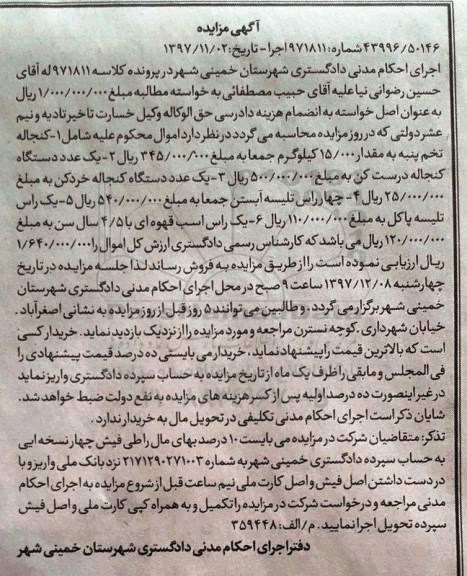 آگهی مزایده
۴۳۹۹۶/۵۰۱۴۶ شماره: ۹۷۱۸۱۱ اجرا - تاریخ: ۱۳۹۷/۱۱/۰۲
اجرای احکام مدنی دادگستری شهرستان خمینی شهر در پرونده کلاسه ۹۷۱۸۱۱ له آقای
حسین رضوانی نیا علیه آقای حبیب مصطفائی به خواسته مطالبه مبلغ ۱/۰۰۰/۰۰۰/۰۰۰ ریال
به عنوان اصل خواسته به انضمام هزینه دادرسی حق الوکاله وکیل خسارت تاخیر تادیه و نیم
عشر دولتی که در روز مزایده محاسبه می گردد در نظر دارد اموال محکوم علیه شامل ۱-کنجاله
تخم پنبه به مقدار ۱۵/۰۰۰ کیلوگرم جمعا به مبلغ ۳۴۵/۰۰۰/۰۰۰ ریال ۲-یک عدد دستگاه
کنجاله درست کن به مبلغ ۵۰۰/۰۰۰/۰۰۰ ریال ۳-یک عدد دستگاه کنجاله خردکن به مبلغ
۲۵/۰۰۰/۰۰۰ ریال ۴- چهار راس تلیسه آبستن جمعا به مبلغ ۵۴۰/۰۰۰/۰۰۰ ریال ۵-یک راس
تلیسه پاکل به مبلغ ۱۱۰/۰۰۰/۰۰۰ ریال ۶-یک راس اسب قهوه ای با ۴/۵ سال سن به مبلغ
۱۲۰/۰۰۰/۰۰۰ ریال می باشد که کارشناس رسمی دادگستری ارزش کل اموال را ۱/۶۴۰/۰۰۰/۰۰۰
ریال ارزیابی نموده است را از طریق مزایده به فروش رساند لذا جلسه مزایده در تاریخ
چهارشنبه ۱۳۹۷/۱۲/۰۸ ساعت ۹ صبح در محل اجرای احکام مدنی دادگستری شهرستان
خمینی شهر برگزار می گردد، و طالبین می توانند ۵ روز قبل از روز مزایده به نشانی اصغرآباد.
خیابان شهرداری. کوچه نسترن مراجعه و مورد مزایده را از نزدیک بازدید نماید. خریدار کسی
است که بالاترین قیمت را پیشنهاد نماید، خریدار می بایستی ده درصد قیمت پیشنهادی را
فی المجلس و مابقی را ظرف یک ماه از تاریخ مزایده به حساب سپرده دادگستری واریز نماید
در غیر اینصورت ده درصد اولیه پس از کسر هزینه های مزایده به نفع دولت ضبط خواهد شد.
شایان ذکر است اجرای احکام مدنی تکلیفی در تحویل مال به خریدار ندارد.
تذکر: متقاضیان شرکت در مزایده می بایست ۱۰ درصد بهای مال را طی فیش چهار نسخه ایی
به حساب سپرده دادگستری خمینی شهر به شماره ۲۱۷۱۲۹۰۲۷۱۰۰۳ نزد بانک ملی واریز و با
در دست داشتن اصل فیش و اصل کارت ملی نیم ساعت قبل از شروع مزایده به اجرای احکام
مدنی مراجعه و درخواست شرکت در مزایده را تکمیل و به همراه کپی کارت ملی و اصل فیش
سپرده تحویل اجرا نمایید. م/الف: ۳۵۹۴۴۸
دفتر اجرای احکام مدنی دادگستری شهرستان خمینی شهر